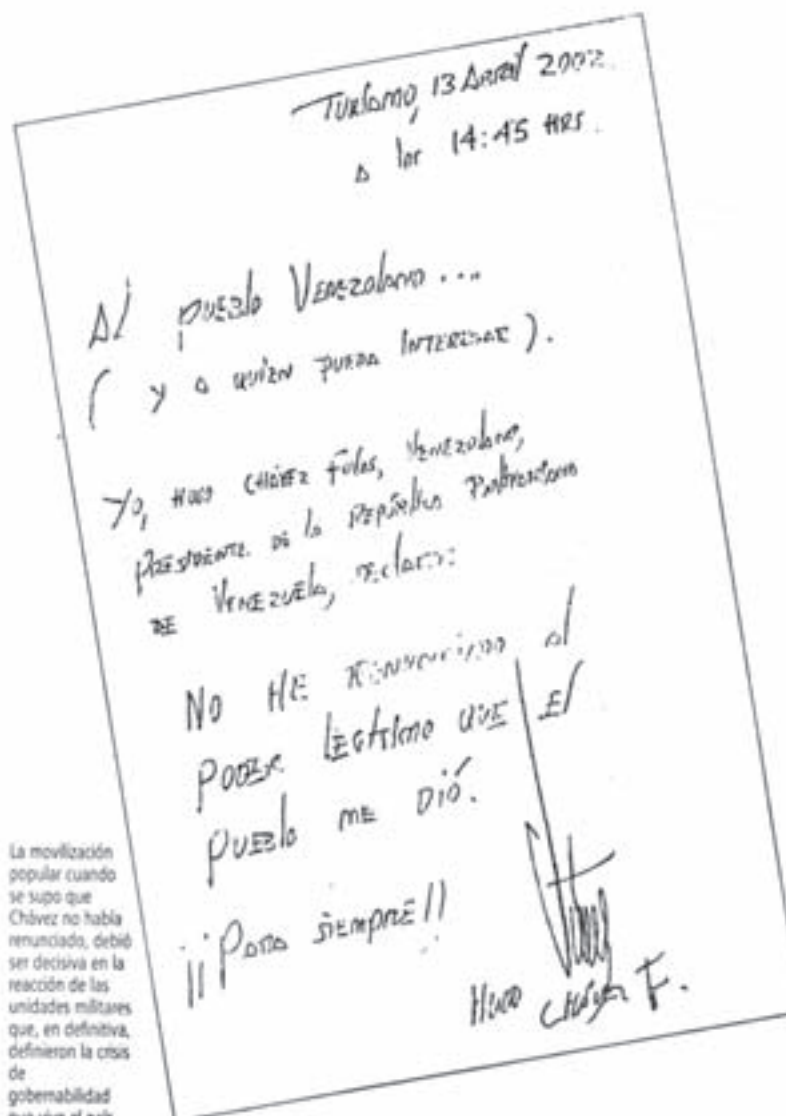 Turiamo, 13 Abril 2002.
a las 14:45 HRS.
Al pueblo Venezolano...
( y a quien pueda interesar ).
Yo, Hugo Chávez Frías, venezolano,
Presidente de la República Bolivariana
de Venezuela, declaro:
No he renunciado al
poder legítimo que el
pueblo me dió.
¡¡Para siempre!!
Hugo Chávez F.
La movilización
popular cuando
se supo que
Chávez no había
renunciado, debió
ser decisiva en la
reacción de las
unidades militares
que, en definitiva,
definieron la crisis
de
gobernabilidad